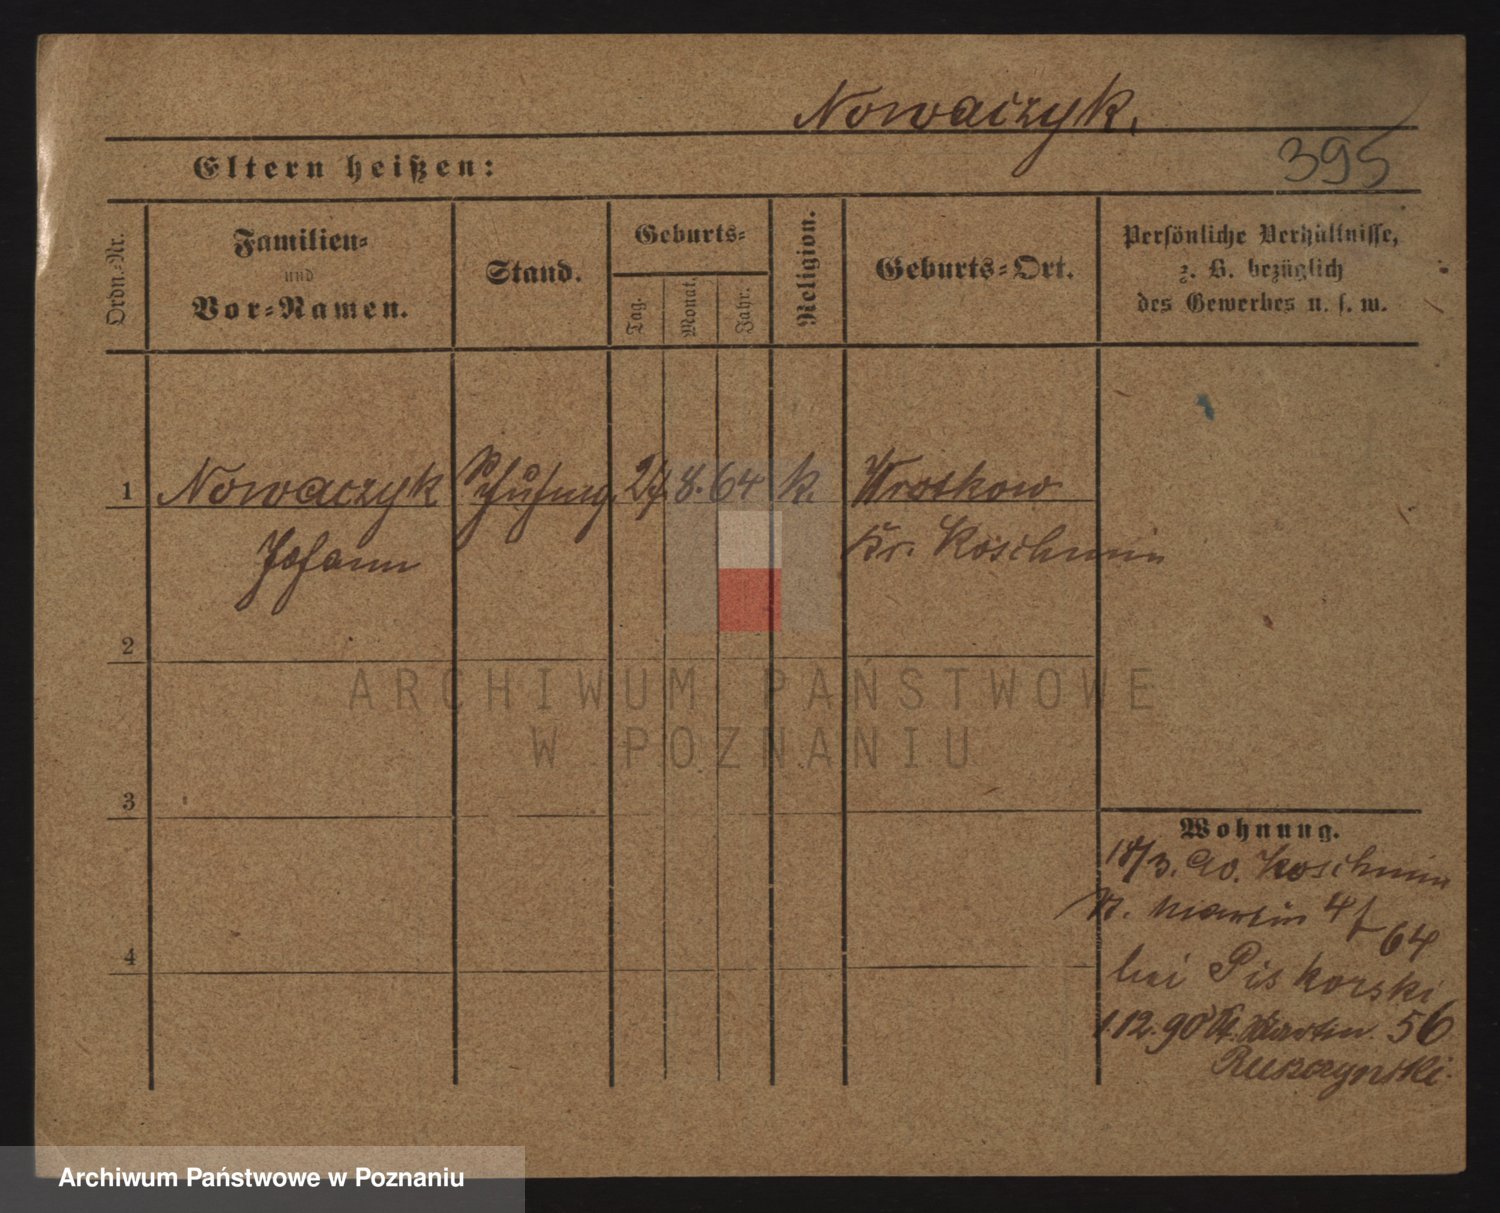 Nowaczyk.
395
Eltern heißen:
Ordn.-Nr.
Familien-
und
Vor-Namen.
Stand.
Geburts-
Tag.
Monat.
Jahr.
Religion.
Geburts-Ort.
Persönliche Verhältnisse,
z. B. bezüglich
des Gewerbes u. s. w.
1 Nowaczyk 8. 64 k. Wroskow
Johann Kr. Koschmin
2
ARCHIWUM PAŃSTWOWE
W POZNANIU
3
4
Wohnung.
18/3. 90. Koschmin
St. Martin 64
bei Piskorski
1.12.90 St. Martin. 56
Ruszczynski.
Archiwum Państwowe w Poznaniu